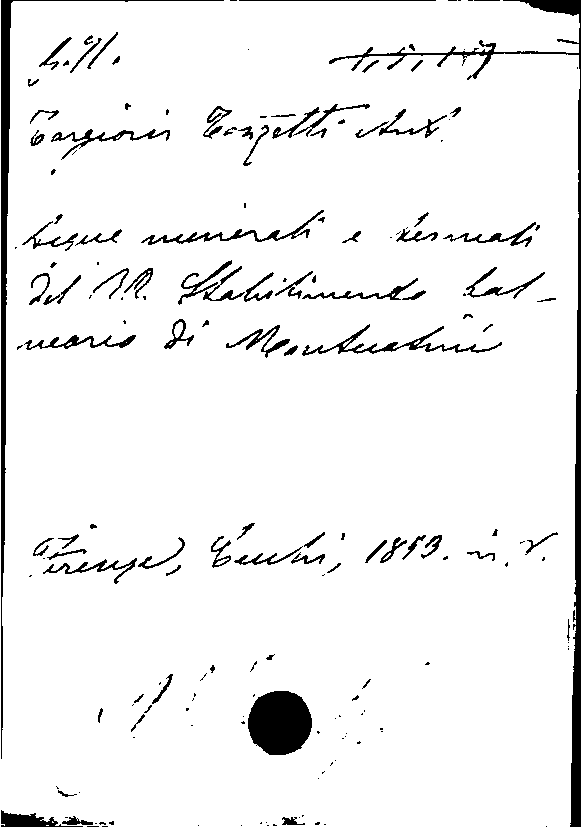 Targioni Tozzetti Ant.
Acque minerali e termali
del RR. Stabilimento bal-
neario di Montecatini
Firenze, Cecchi, 1853. in 8.